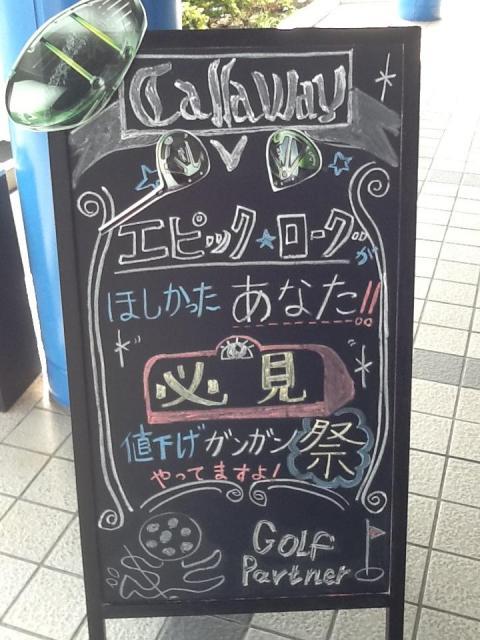 Callaway
エピック★ローグが
ほしかった あなた!!
必見
値下げガンガン祭
やってますよ!
GOLF
Partner